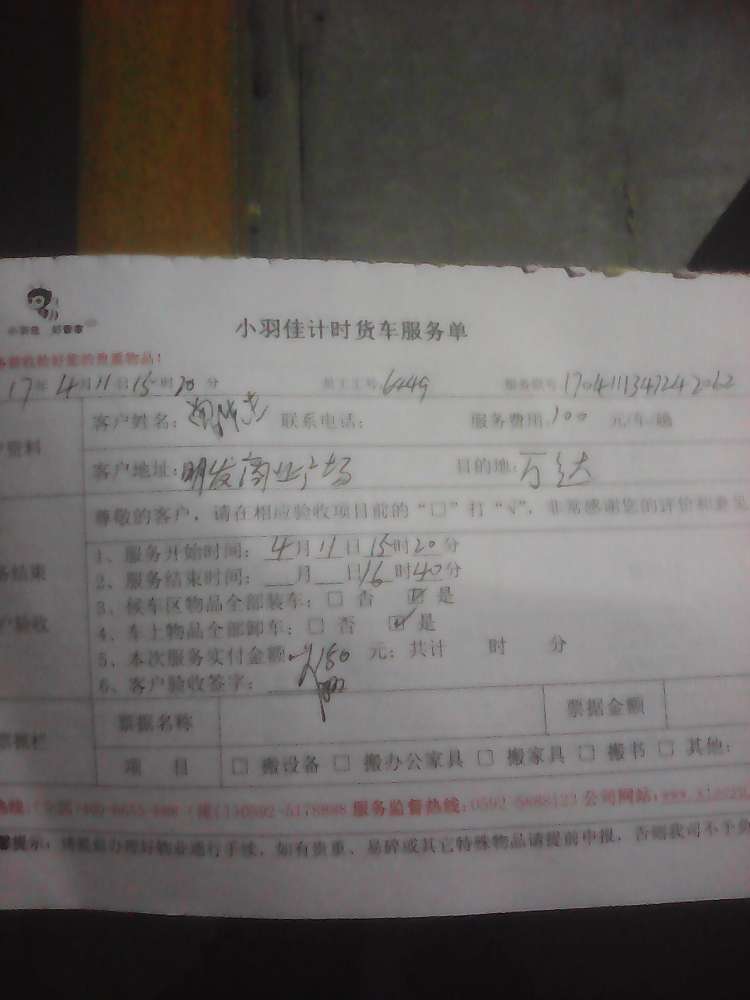 小羽佳 好管家
小羽佳计时货车服务单
17年4月11日15时20分 员工工号:6449 服务单号:1704111347242062
客户姓名: 联系电话: 服务费用:100 元/车/趟
户资料
客户地址:明发商业广场 目的地:万达
尊敬的客户，请在相应验收项目前的“□”打“√”，非常感谢您的评价和意见
1、服务开始时间:4月11日15时20分
务结束 2、服务结束时间: 月 日16时40分
3、候车区物品全部装车:□ 否 ☑ 是
户验收 4、车上物品全部卸车:□ 否 ☑ 是
5、本次服务实付金额 150 元; 共计 时 分
6、客户验收签字:
票据栏 票据名称 票据金额
项 目 □ 搬设备 □ 搬办公家具 □ 搬家具 □ 搬书 □ 其他:
热线: 0592-5178898 服务监督热线:0592-5888123 公司网站:
馨提示: 办理好物业通行手续，如有贵重、易碎或其它特殊物品请提前申报，否则我司不予